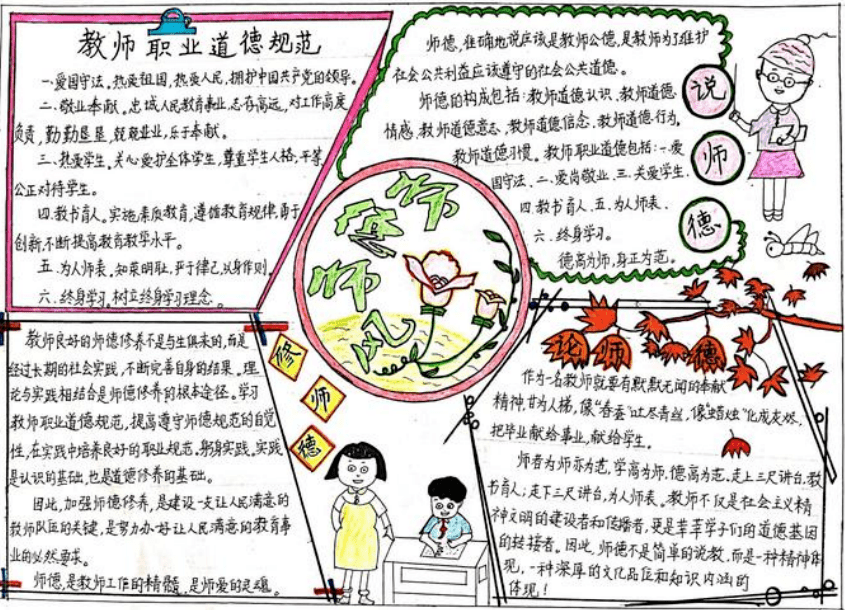 教师职业道德规范
一、爱国守法。热爱祖国,热爱人民,拥护中国共产党的领导。
二、敬业奉献。忠诚人民教育事业,志存高远,对工作高度
负责,勤勤恳恳,兢兢业业,乐于奉献。
三、热爱学生。关心爱护全体学生,尊重学生人格,平等
公正对待学生。
四、教书育人。实施素质教育,遵循教育规律,勇于
创新,不断提高教育教学水平。
五、为人师表,知荣明耻,严于律己,以身作则。
六、终身学习。树立终身学习理念。
师德,准确地说应该是教师公德,是教师为了维护
社会公共利益应该遵守的社会公共道德。
师德的构成包括:教师道德认识、教师道德
情感、教师道德意志、教师道德信念、教师道德行为、
教师道德习惯。教师职业道德包括:一、爱
国守法、二、爱岗敬业、三、关爱学生、
四、教书育人、五、为人师表、
六、终身学习。
德高为师,身正为范。
说
师
德
师德
师风
教师良好的师德修养不是与生俱来的,而是
经过长期的社会实践,不断完善自身的结果。理
论与实践相结合是师德修养的根本途径。学习
教师职业道德规范,提高遵守师德规范的自觉
性,在实践中培养良好的职业规范。躬身实践,实践
是认识的基础,也是道德修养的基础。
因此,加强师德修养,是建设一支让人民满意的
教师队伍的关键,是努力办好让人民满意的教育事
业的必然要求。
师德,是教师工作的精髓,是师爱的灵魂。
修
师
德
论师德
作为一名教师就要有默默无闻的奉献
精神,甘为人梯,像“春蚕”吐尽青丝,像“蜡烛”化成灰烬,
把毕业献给事业,献给学生。
师者为师亦为范,学高为师,德高为范。走上三尺讲台,教
书育人;走下三尺讲台,为人师表。教师不仅是社会主义精
神文明的建设者和传播者,更是莘莘学子们的道德基因
的转接者。因此,师德不是简单的说教,而是一种精神体
现,一种深厚的文化品位和知识内涵的
体现!